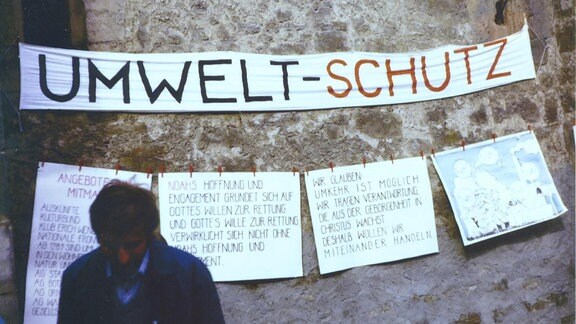 UMWELT-SCHUTZ
ANGEBOTE
MITMA
AUSKÜNFTE
KULTURBUND
KLUB ERICH W
NATIONALE FRON
IN DEN WOHN
NATUR UM
AG
AG
AG
AG
GESELLS
NOAHS HOFFNUNG UND
ENGAGEMENT GRÜNDET SICH AUF
GOTTES WILLEN ZUR RETTUNG
UND GOTTES WILLE ZUR RETTUNG
VERWIRKLICHT SICH NICHT OHNE
NOAHS HOFFNUNG UND
EMENT.
WIR GLAUBEN,
UMKEHR IST MÖGLICH.
WIR TRAGEN VERANTWORTUNG,
DIE AUS DER GEBORGENHEIT IN
CHRISTUS WÄCHST.
DESHALB WOLLEN WIR
MITEINANDER HANDELN.